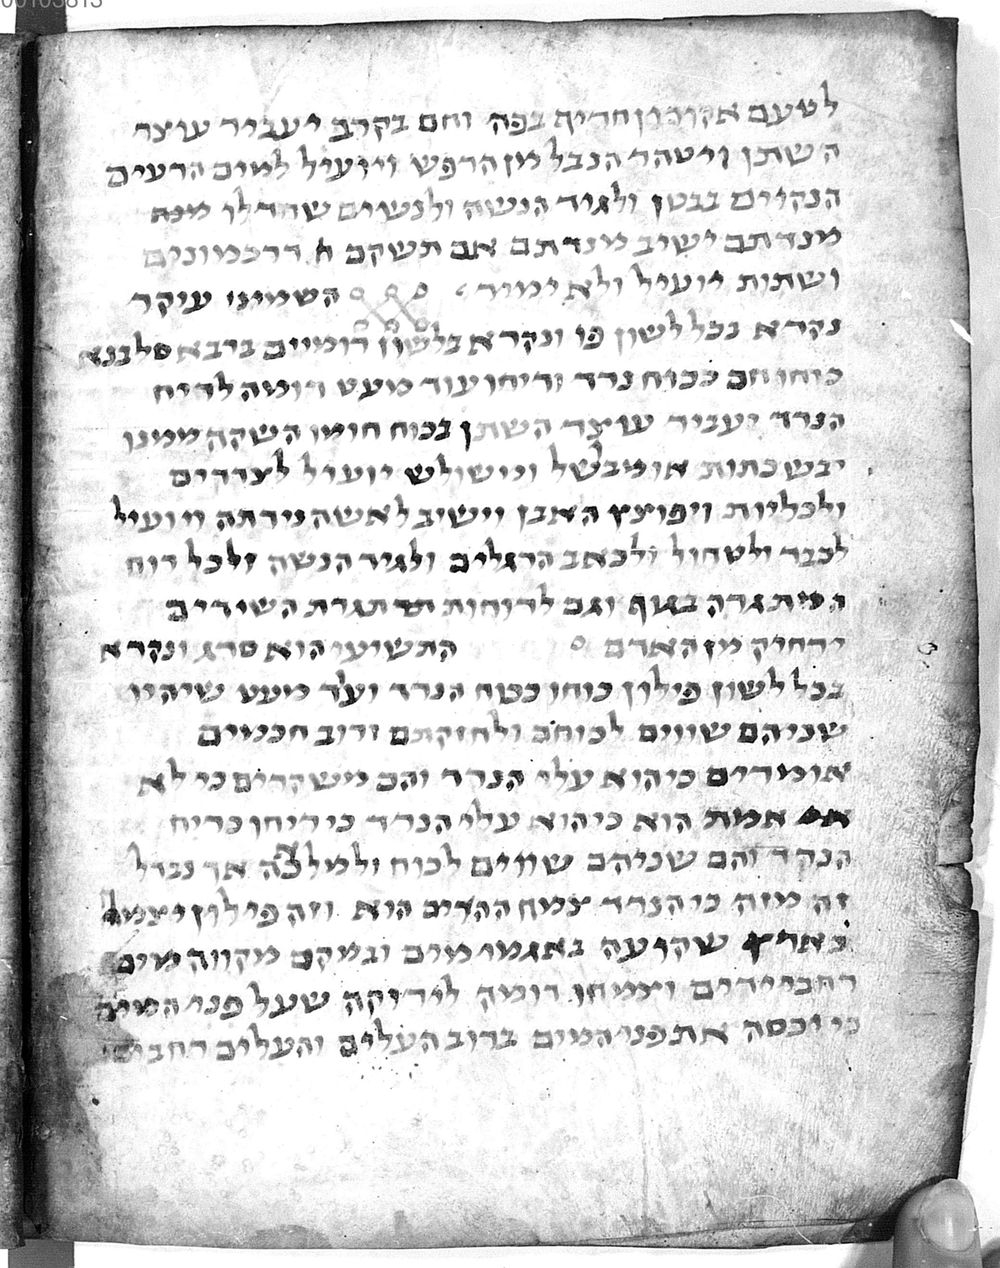 00105813
לטעם אקורון חריף בפה וחם בקרב יעביר עוצר
השתן ויטהר הנבל מן הרפש ויועיל למים הרעים
הנקוים בבטן ולגיד הנשה ולנשים שחדלו מנח
מנדתם ישיב מנדתם אם תשקם א דרכמונים
ושתות יועיל ולא ימור השמיני עיקר
נקרא בכל לשון פו ונקרא בלשון רומיים ביבא סלבגא
כוחו חם ככוח נרד וריחו עוד מעט דומה לריח
הנרד יעביר עוצר השתן בכוח חומו השקה ממנו
יבש כתות או מבשל ומישולש יועיל לצדדים
ולכליות ויפוצץ האבן וישיב לאשה נידתה ויועיל
לכבד ולטחול ולכאב הרגלים ולגיד הנשה ולכל רוח
המתגרה בגוף וגם לרוחות תגרת השידים
ירחיק מן האדם התשיעי הוא סרג ונקרא
בכל לשון פילון כוחו ככוח הנרד ועוד מעט שיהיו
שניהם שווים לכוחם ולחזקתם ורוב חכמים
אומרים כי הוא עלי הנרד והם משקרים כי לא
אמת הוא כי הוא עלי הנרד כי ריחן כריח
הנרד והם שניהם שווים לכוח ולמלאכה אך נבדל
זה מזה כי הנרד צמח ההרים הוא וזה פילון יצמח
בארץ שקועה באגמי מים ובמקם מקווה מים
רחבי ידים וצמחו דומה לירוקה שעל פני המים
כי יכסה את פני המים ברוב העלים והעלים רחבים